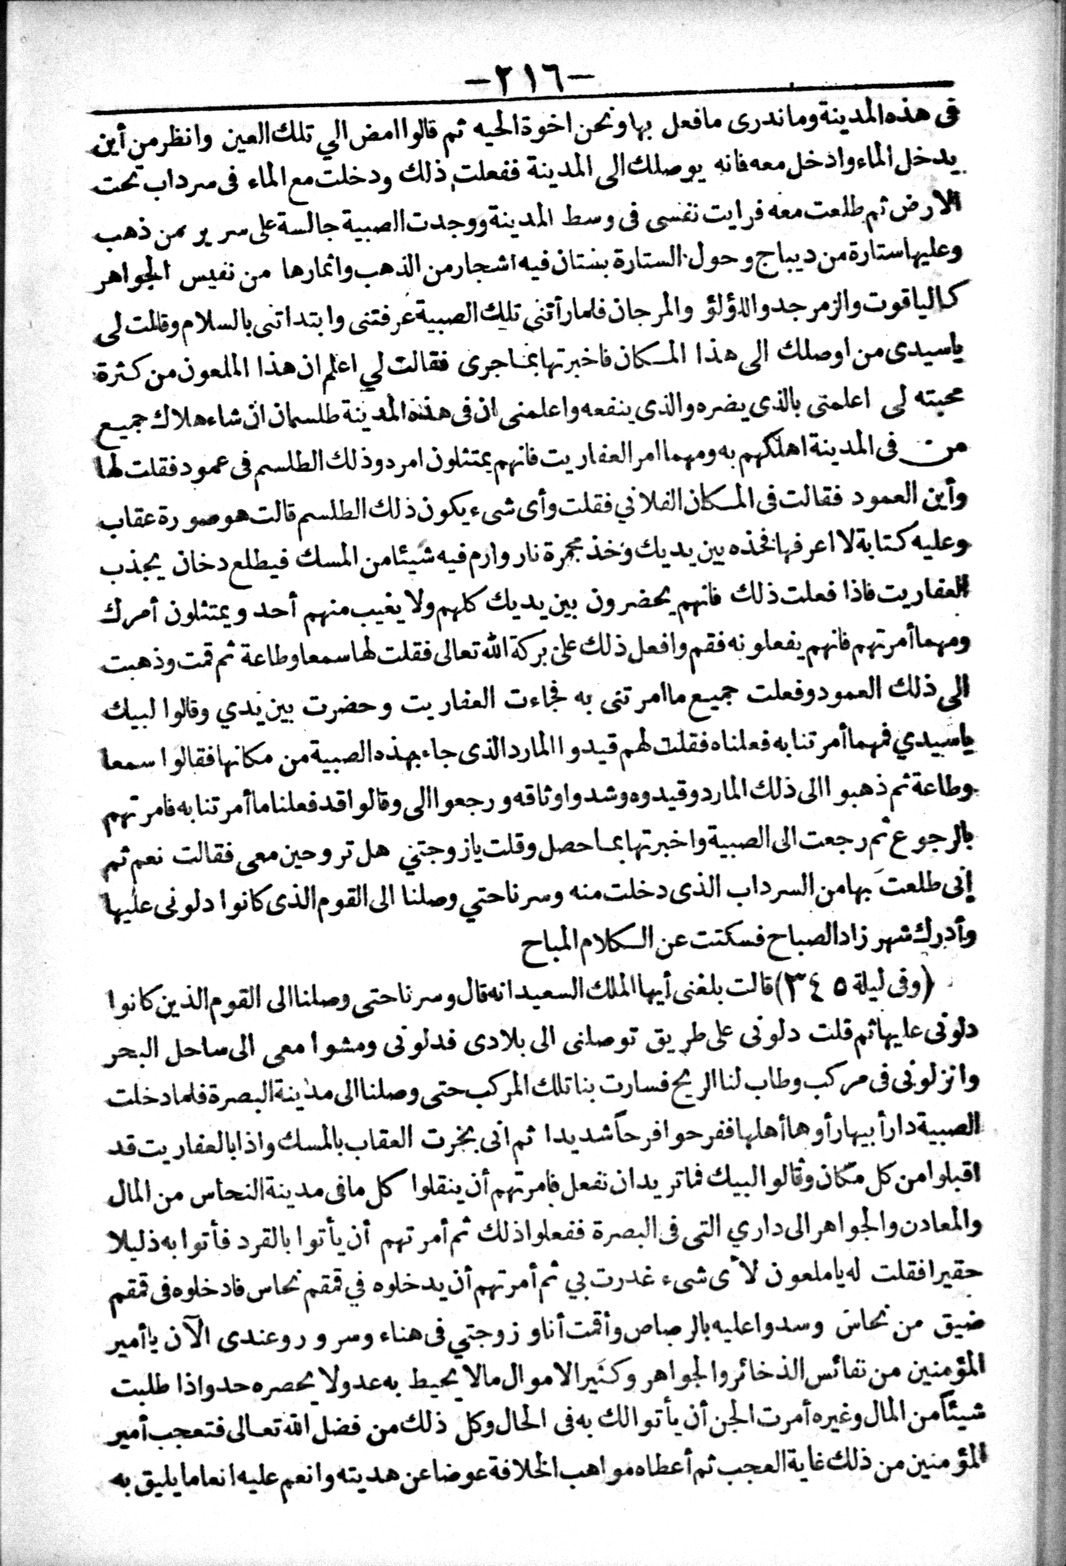 -٢١٦-
فى هذه المدينة وما ندرى ما فعل بها ونحن اخوة الحيه ثم قالوا امض الي تلك العين وانظر من أين
يدخل الماء وادخل معه فانه يوصلك الى المدينة ففعلت ذلك ودخلت مع الماء فى سرداب تحت
الارض ثم طلعت معه فرايت نفسى فى وسط المدينة ووجدت الصبية جالسة على سرير من ذهب
وعليها ستارة من ديباج وحول الستارة بستان فيه اشجار من الذهب واثمارها من نفيس الجواهر
كالياقوت والزمرجد واللؤلؤ والمرجان فلما رأتني تلك الصبية عرفتنى وابتداتنى بالسلام وقالت لى
ياسيدى من اوصلك الى هذا المكان فاخبرتها بما جرى فقالت لي اعلم ان هذا الملعون من كثرة
محبته لى اعلمتى بالذى يضره والذى ينفعه واعلمنى ان فى هذه المدينة طلسمان ان شاء هلاك جميع
من فى المدينة اهلكهم به ومهما امر العفاريت فانهم يمتثلون امره وذلك الطلسم فى عمود فقلت لها
وأين العمود فقالت فى المكان الفلاني فقلت وأى شىء يكون ذلك الطلسم قالت هو صورة عقاب
وعليه كتابة لا اعرفها فخذه بين يديك وخذ مجمرة نار وارم فيه شيئا من المسك فيطلع دخان يجذب
العفاريت فاذا فعلت ذلك فانهم يحضرون بين يديك كلهم ولا يغيب منهم أحد ويمتثلون أمرك
ومهما أمرتهم فانهم يفعلونه فقم وافعل ذلك على بركة الله تعالى فقلت لها سمعا وطاعة ثم قمت وذهبت
الى ذلك العمود وفعلت جميع ما امرتنى به فجاءت العفاريت وحضرت بين يدي وقالوا لبيك
ياسيدي فمهما أمرتنا به فعلناه فقلت لهم قيدوا المارد الذى جاء بهذه الصبية من مكانها فقالوا سمعا
وطاعة ثم ذهبوا الى ذلك المارد وقيدوه وشدوا وثاقه ورجعوا الى وقالوا قد فعلنا ما أمرتنا به فامرتهم
بالرجوع ثم رجعت الى الصبية واخبرتها بما حصل وقلت يا زوجتي هل تروحين معى فقالت نعم ثم
إنى طلعت بها من السرداب الذى دخلت منه وسرنا حتي وصلنا الى القوم الذى كانوا دلونى عليها
وأدرك شهر زاد الصباح فسكتت عن الكلام المباح
(وفى ليلة ٣٤٥) قالت بلغنى أيها الملك السعيد انه قال وسرنا حتى وصلنا الى القوم الذين كانوا
دلونى عليها ثم قلت دلونى على طريق توصلنى الى بلادى فدلونى ومشوا معى الى ساحل البحر
وانزلونى فى مركب وطاب لنا الريح فسارت بنا تلك المركب حتى وصلنا الى مدينة البصرة فلما دخلت
الصبية دار أبيها رأوها أهلها ففرحوا فرحاً شديدا ثم انى بخرت العقاب بالمسك واذا بالعفاريت قد
اقبلوا من كل مكان وقالوا لبيك فما تريد ان نفعل فامرتهم أن ينقلوا كل مافى مدينة النحاس من المال
والمعادن والجواهر الى داري التى فى البصرة ففعلوا ذلك ثم أمرتهم أن يأتوا بالقرد فأتوا به ذليلا
حقيرا فقلت له يا ملعون لأى شىء غدرت بي ثم أمرتهم أن يدخلوه في قمقم نحاس فادخلوه فى قمقم
ضيق من نحاس وسدوا عليه بالرصاص وأقمت أنا وزوجتي فى هناء وسرور وعندى الآن يا أمير
المؤمنين من نفائس الذخائر والجواهر وكثير الاموال مالا يحيط به عد ولا يحصره حد واذا طلبت
شيئاً من المال وغيره أمرت الجن أن يأتوا لك به فى الحال وكل ذلك من فضل الله تعالى فتعجب أمير
المؤمنين من ذلك غاية العجب ثم أعطاه مواهب الخلافة عوضا عن هديته وانعم عليه انعاما يليق به